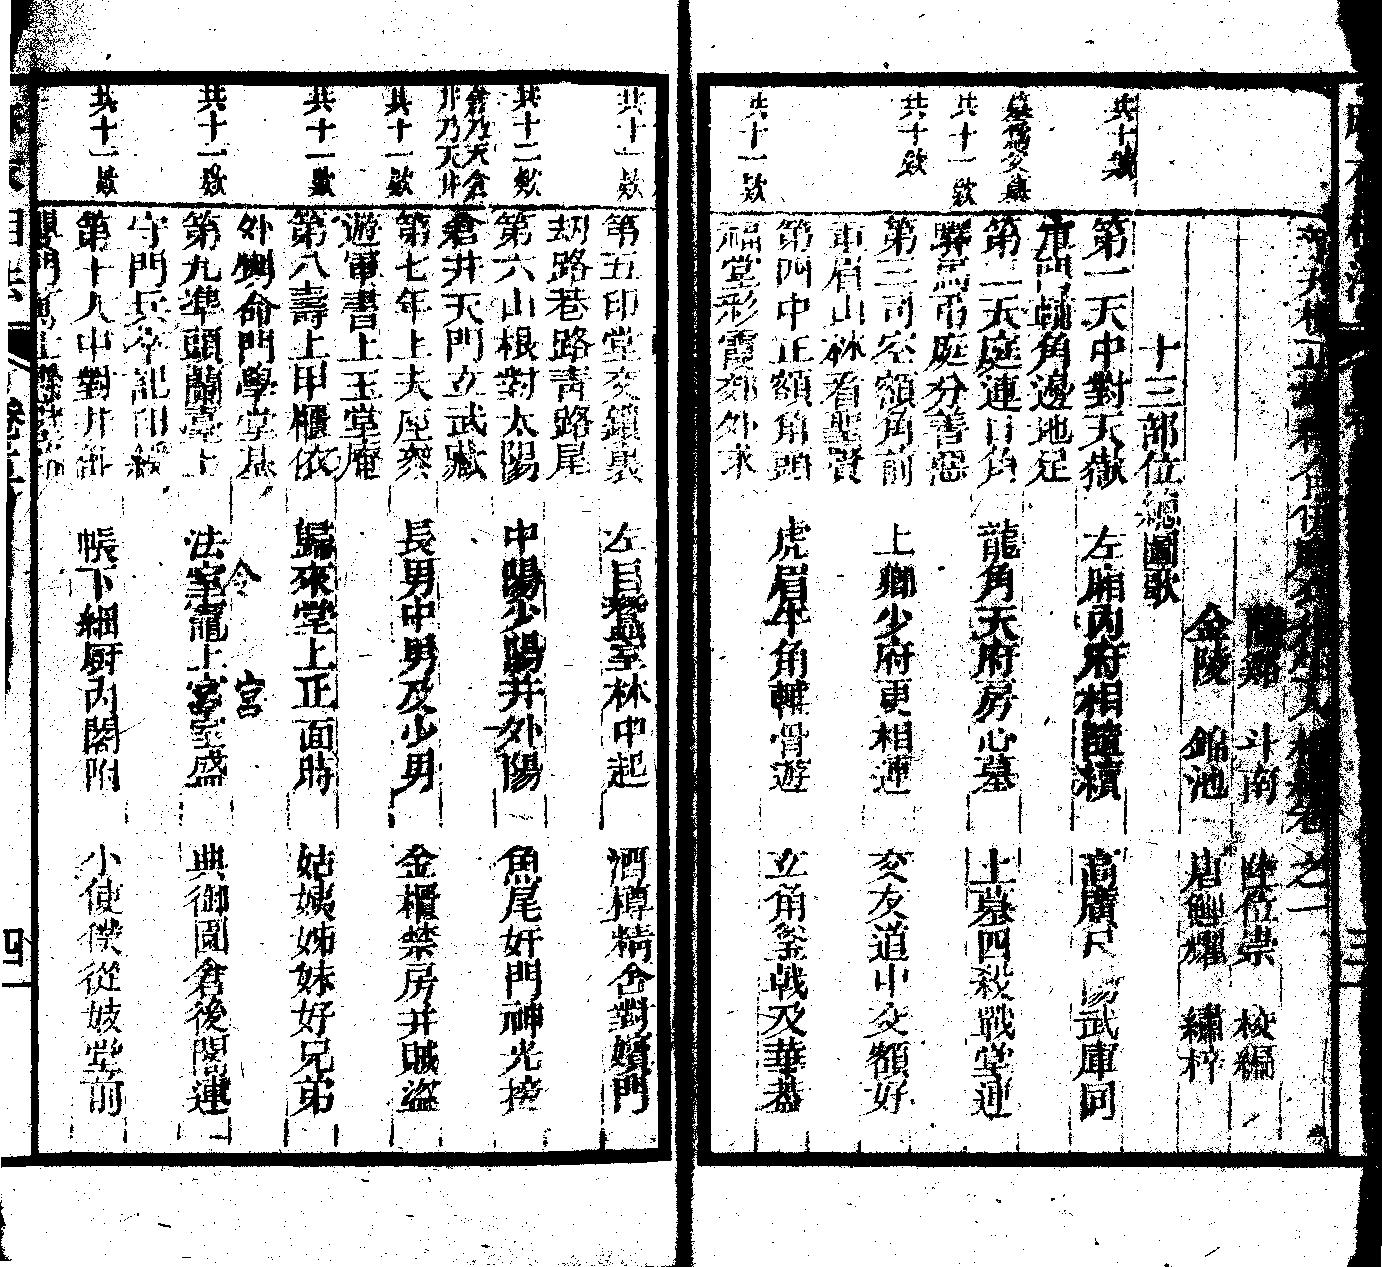 蘭谿 斗南 陳位崇 校編
金陵 錦池 唐鯉耀 繡梓
十三部位總圖歌
共十款
第一天中對天嶽 左廂內府相隨續 高廣尺陽武庫同
軍門輔角邊地足
墓為交墓
共十一款
第二天庭連日角 龍角天府房心墓 上墓四殺戰堂連
驛馬吊庭分善惡
共十款
第三司空額角前 上卿少府更相連 交友道中交額好
重眉山林看聖賢
第四中正額角頭 虎眉牛角輔骨遊 立角釡戟及華蓋
共十一款
福堂彩霞郊外求
共十一款
第五印堂交鎖裏 左目蠶室林中起 酒樽精舍對嬪門
刼路巷路青路尾
共十二款
第六山根對太陽 中陽少陽并外陽 魚尾奸門神光接
倉乃天倉
井乃天井
倉井天門立武藏
共十一款
第七年上夫座參 長男中男及少男 金櫃禁房并賊盜
遊軍書上玉堂庵
共十一款
第八壽上甲櫃依 歸來堂上正面時 姑姨姊妹好兄弟
外甥命門學堂基
令 宮
共十一款
第九準頭蘭臺上 法室竈上宮室盛 典御園倉後閣連
守門兵卒記印綬
共十一款
第十人中對井部 帳下細厨內閣附 小使僕從妓堂前
四